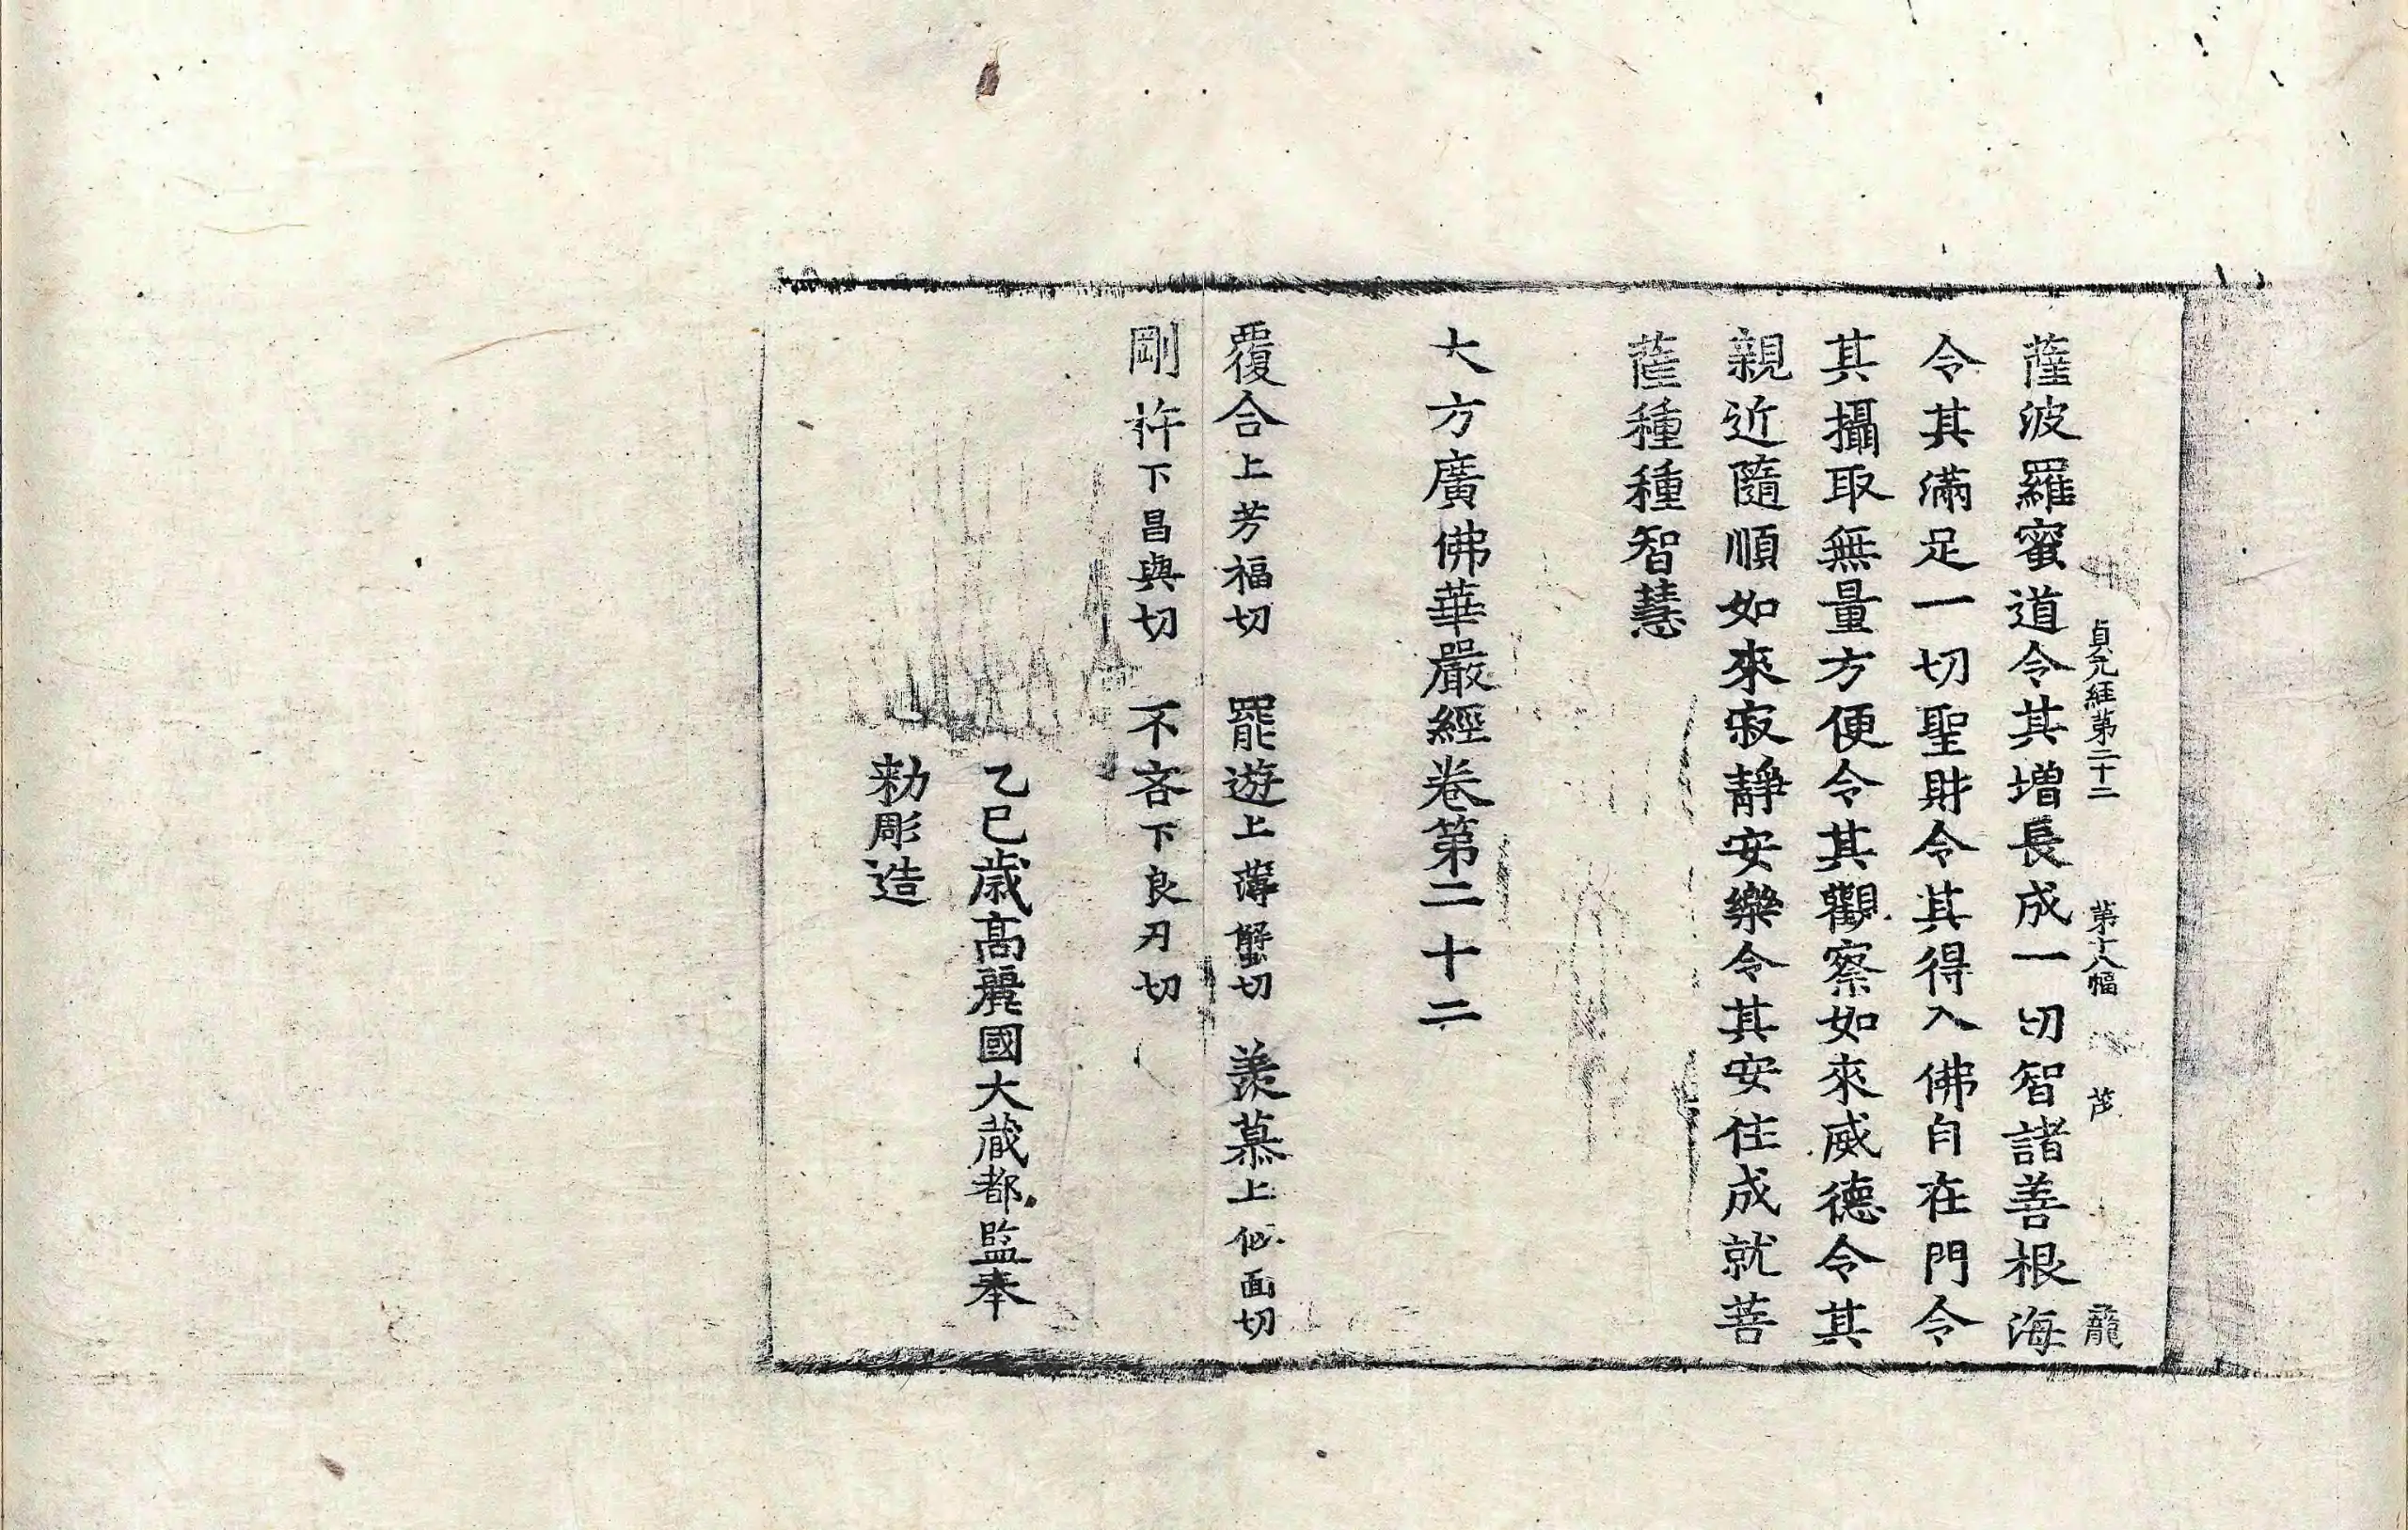 貞元経第二十二 第十八幅 龍
薩波羅蜜道令其增長成一切智諸善根海
令其滿足一切聖財令其得入佛自在門令
其攝取無量方便令其觀察如來威德令其
親近隨順如來寂靜安樂令其安住成就菩
薩種種智慧
大方廣佛華嚴經卷第二十二
覆合上芳福切 罷遊上薄蟹切 羨慕上似面切
剛杵下昌與切 不吝下良刃切
乙巳歲高麗國大藏都監奉
勅彫造